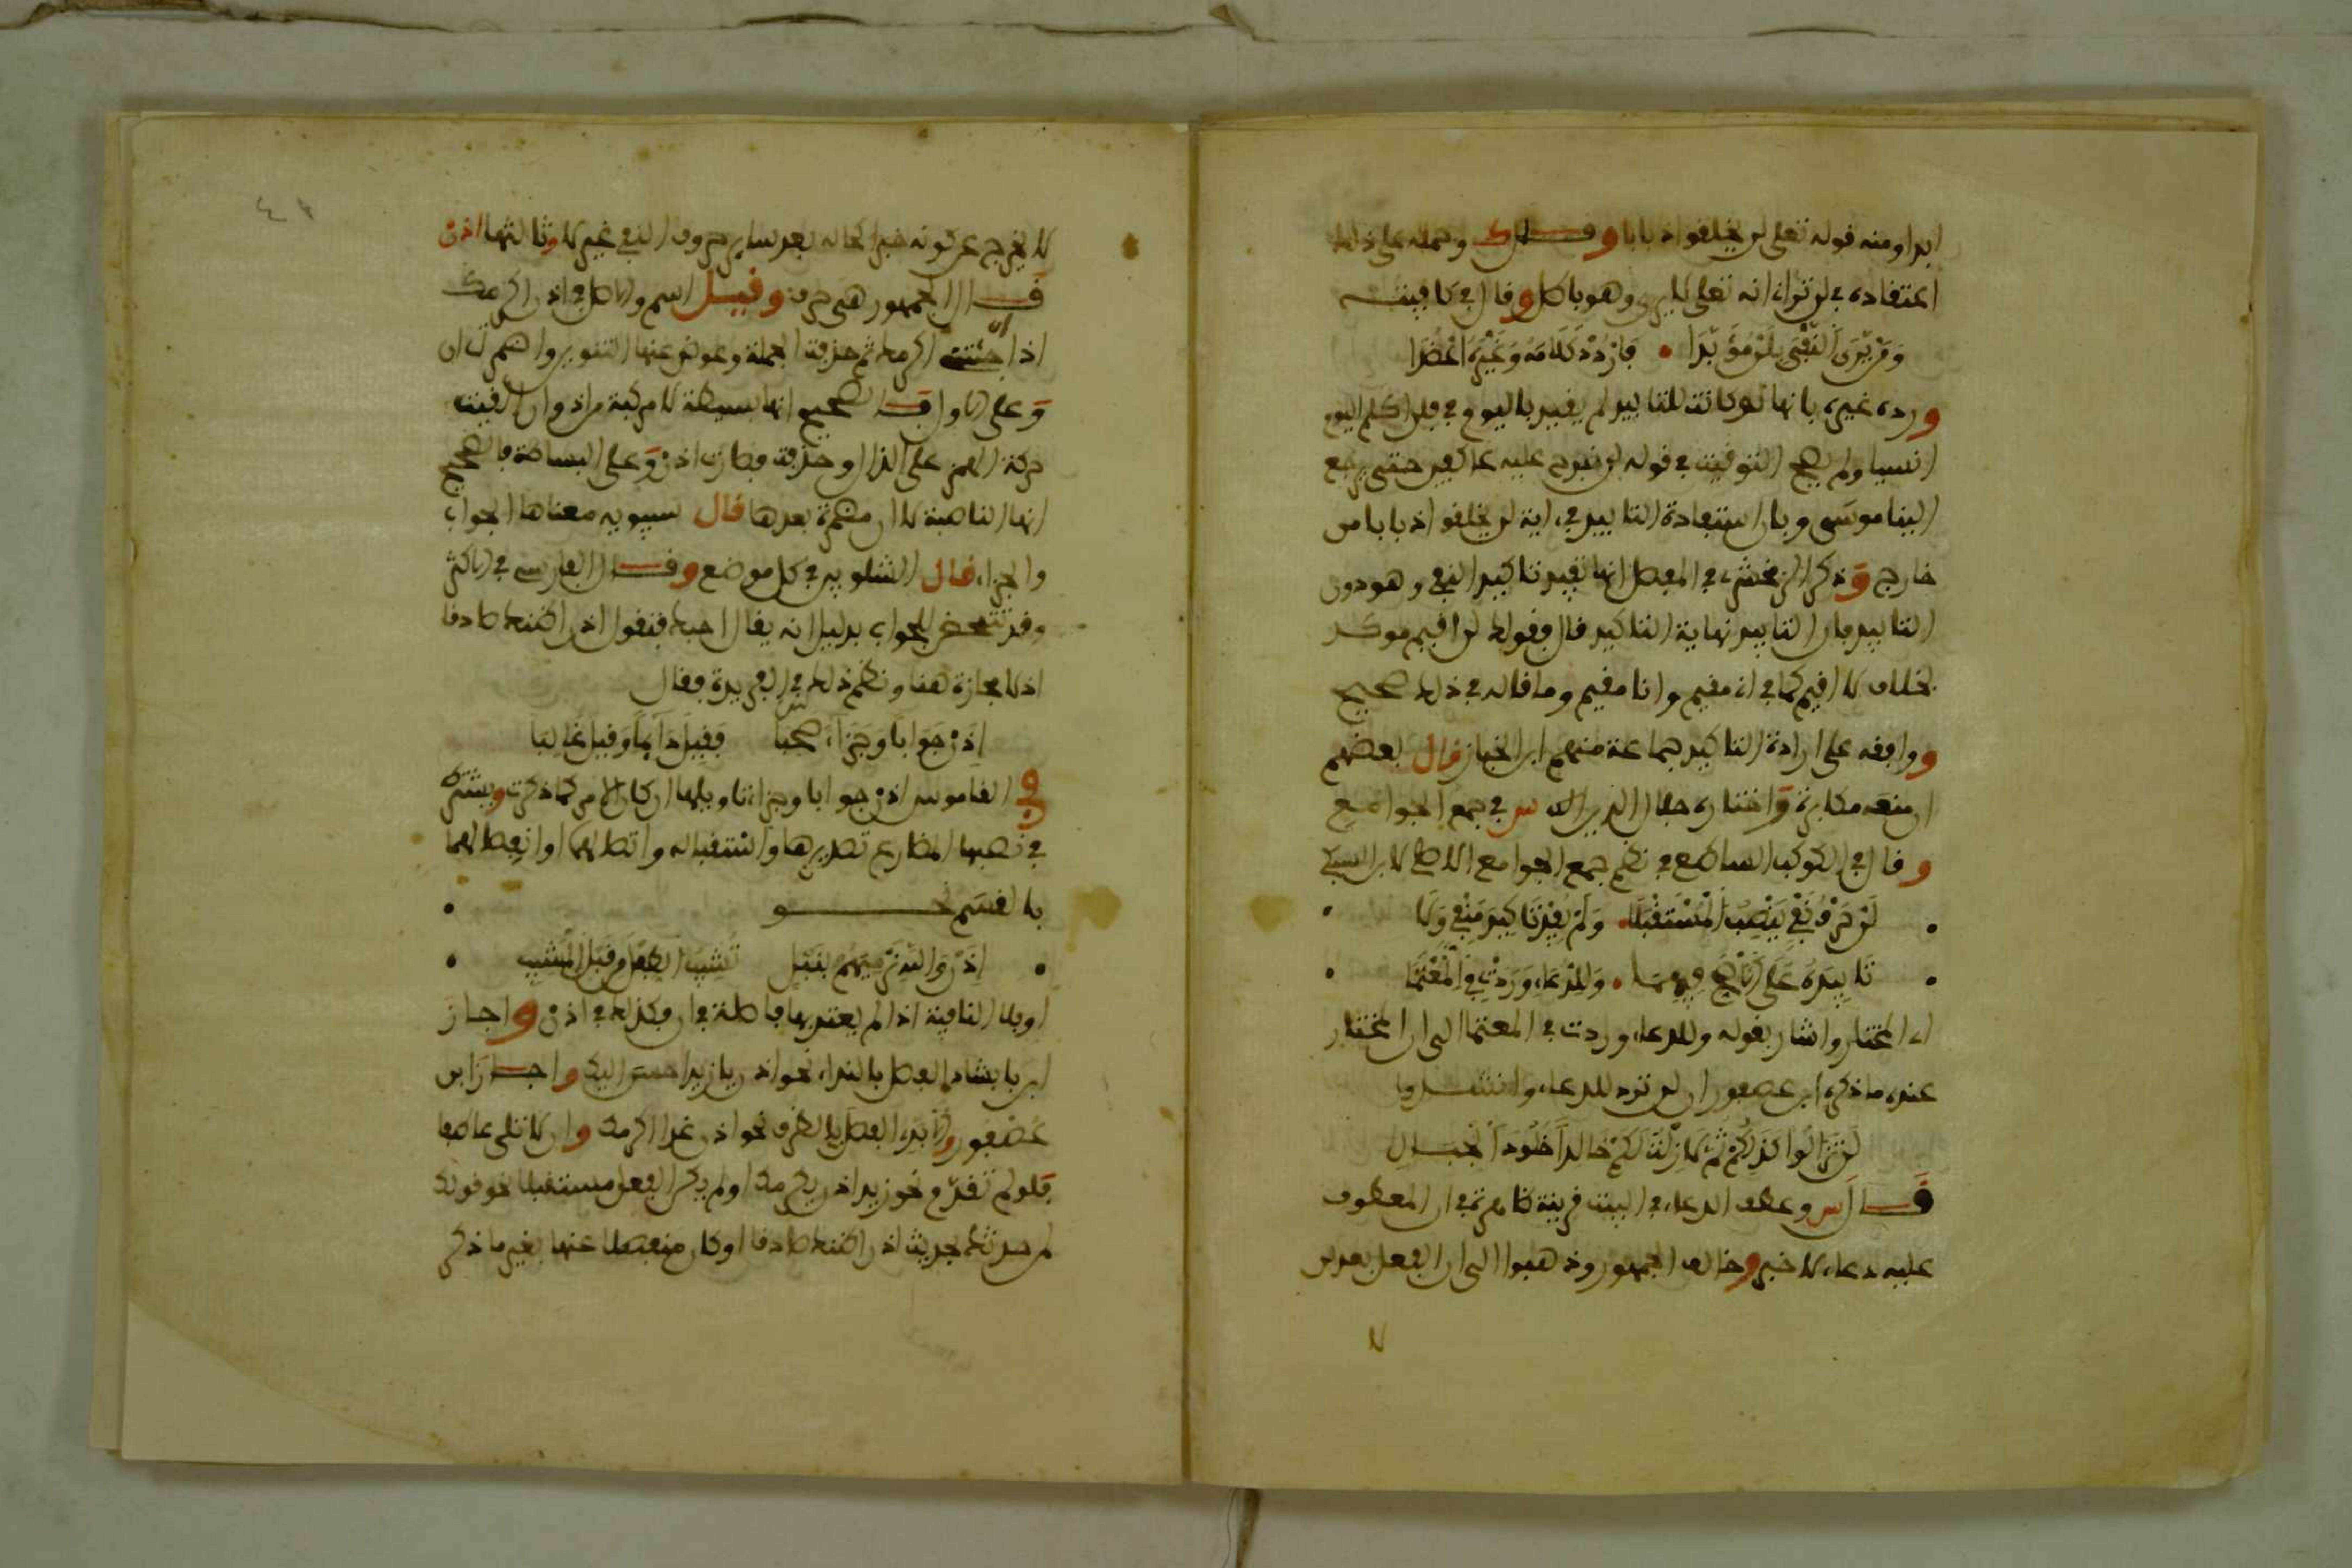 ابدا ومنه قوله تعلى لن يخلقوا ذبابا وقال ك وحمله على ذلك
اعتقاده في لن تراني انه تعلى لا يرى وهو باطل وقال في كافيته
ومن يرى النفي بلن مؤبدا • فاردد كلامه وغيره اعضدا
ورده غيره بانها لو كانت للتابيد لم يقيد باليوم في فلن اكلم اليوم
انسيا ولم يصح التوقيت في قوله لن نبرح عليه عاكفين حتى يرجع
الينا موسى وبان استفادة التابيد في اية لن يخلقوا ذبابا من
خارج وذكر الزمخشري في المفصل انها تفيد تاكيد النفي وهو دون
التابيد فان التابيد نهاية التاكيد قال فقولك لن اقيم موكد
بخلاف لا اقيم كما في اني مقيم وانا مقيم وما قاله في ذلك صحيح
ووافقه على ارادة التاكيد جماعة منهم ابن الخباز قال بعضهم
ان منعه مكابرة واختاره جلال الدين س في جمع الجوامع
وقال في الكوكب الساطع في نظم جمع الجوامع الاصلي لابن السبكي
• لن حرف نفي ينصب المستقبلا • ولم يفد تاكيد منفي ولا •
• تابيده على الاصح فيهما • وللدعاء وردت في المعتما •
اي المختار واشار بقوله وللدعاء وردت في المعتما الى ان المختار
عنده ما ذكره ابن عصفور ان لن ترد للدعاء وانشدوا
لن تزالوا كذلكم ثم لا زلت لكم خالدا خلود الجبال
قال س وعطف الدعاء في البيت قرينة ظاهرة في ان المعطوف
عليه دعاء لا خبر وخالف الجمهور وذهبوا الى ان الفعل بعد لن
لا يخرج عن كونه خبرا كحاله بعد سائر حروف النفي غير لا وثالثها اذن
قال الجمهور هي حرف وقيل اسم والاصل في اذن اكرمك
اذا جئتني اكرمك ثم حذفت الجملة وعوض عنها التنوين واضمرت ان
وعلى الاول فالصحيح انها بسيطة لا مركبة من اذ وان القيت
حركة الهمز على الذال وحذفت فصارت اذن وعلى البساطة فالصحيح
انها الناصبة لا ان مضمرة بعدها قال سيبويه معناها الجواب
والجزاء قال الشلوبين في كل موضع وقال الفارسي في الاكثر
وقد تتمحض للجواب بدليل انه يقال احبك فتقول اذن اظنك صادقا
اذ لا مجازاة هنا ونظم ذلك في الفريدة فقال
اذن جوابا وجزاء صحبا فقيل دائما وقيل غالبا
وفي القاموس اذن جوابا وجزاء تاويلها ان كان الامر كما ذكرت ويشترط
في نصبها المضارع تصديرها واستقباله واتصالهما او انفصالهما
بالقسم نحو •
• اذن والله نرميهم بنبل تشيب الطفل من قبل المشيب •
او بلا النافية اذ لم يعتد بها فاصلة في ان فكذلك في اذن واجاز
ابن بابشاذ الفصل بالنداء نحو اذن يا زيد احسن اليك واجاز ابن
عصفور والابدي الفصل بالظرف نحو اذن غدا اكرمك وان لا تلي عاطفا
فلو لم تقدم نحو زيد اذن يكرمك او لم يكن الفعل مستقبلا نحو قولك
لمن حدثك بحديث اذن اظنك صادقا او كان منفصلا عنها بغير ما ذكر